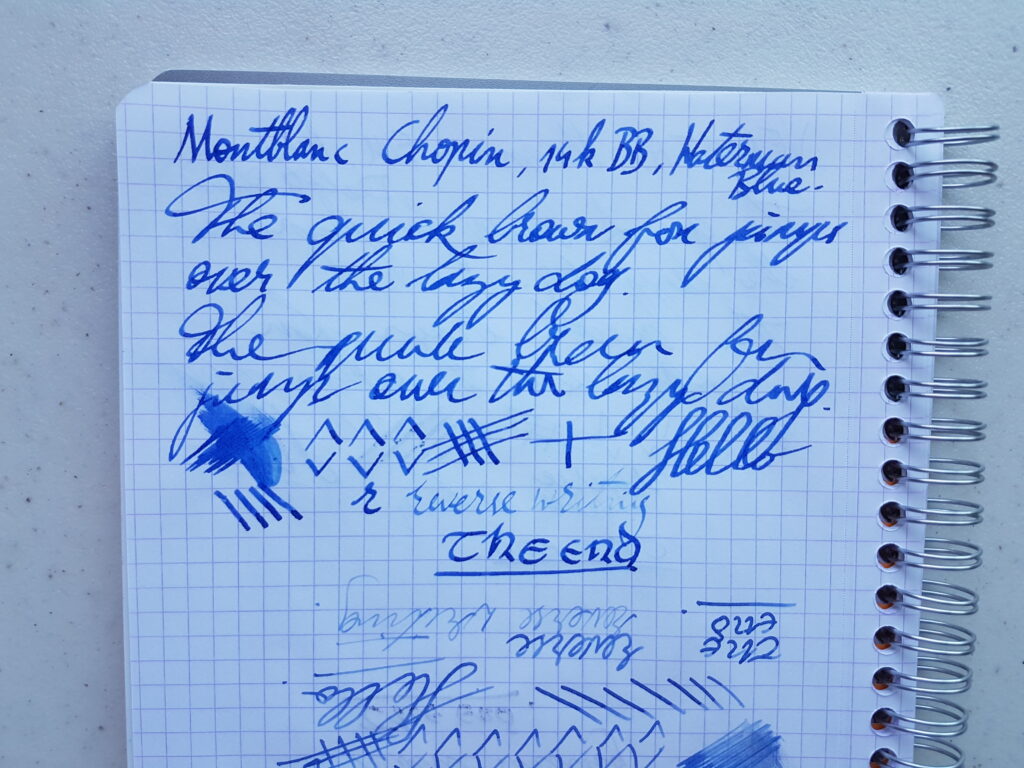 Montblanc Chopin, 14k BB, Waterman
Blue.
The quick brown fox jumps
over the lazy dog.
The quick brown fox
jumps over the lazy dog.
Hello
r reverse writing
THE END
THE END
reverse
reverse writing
Hello